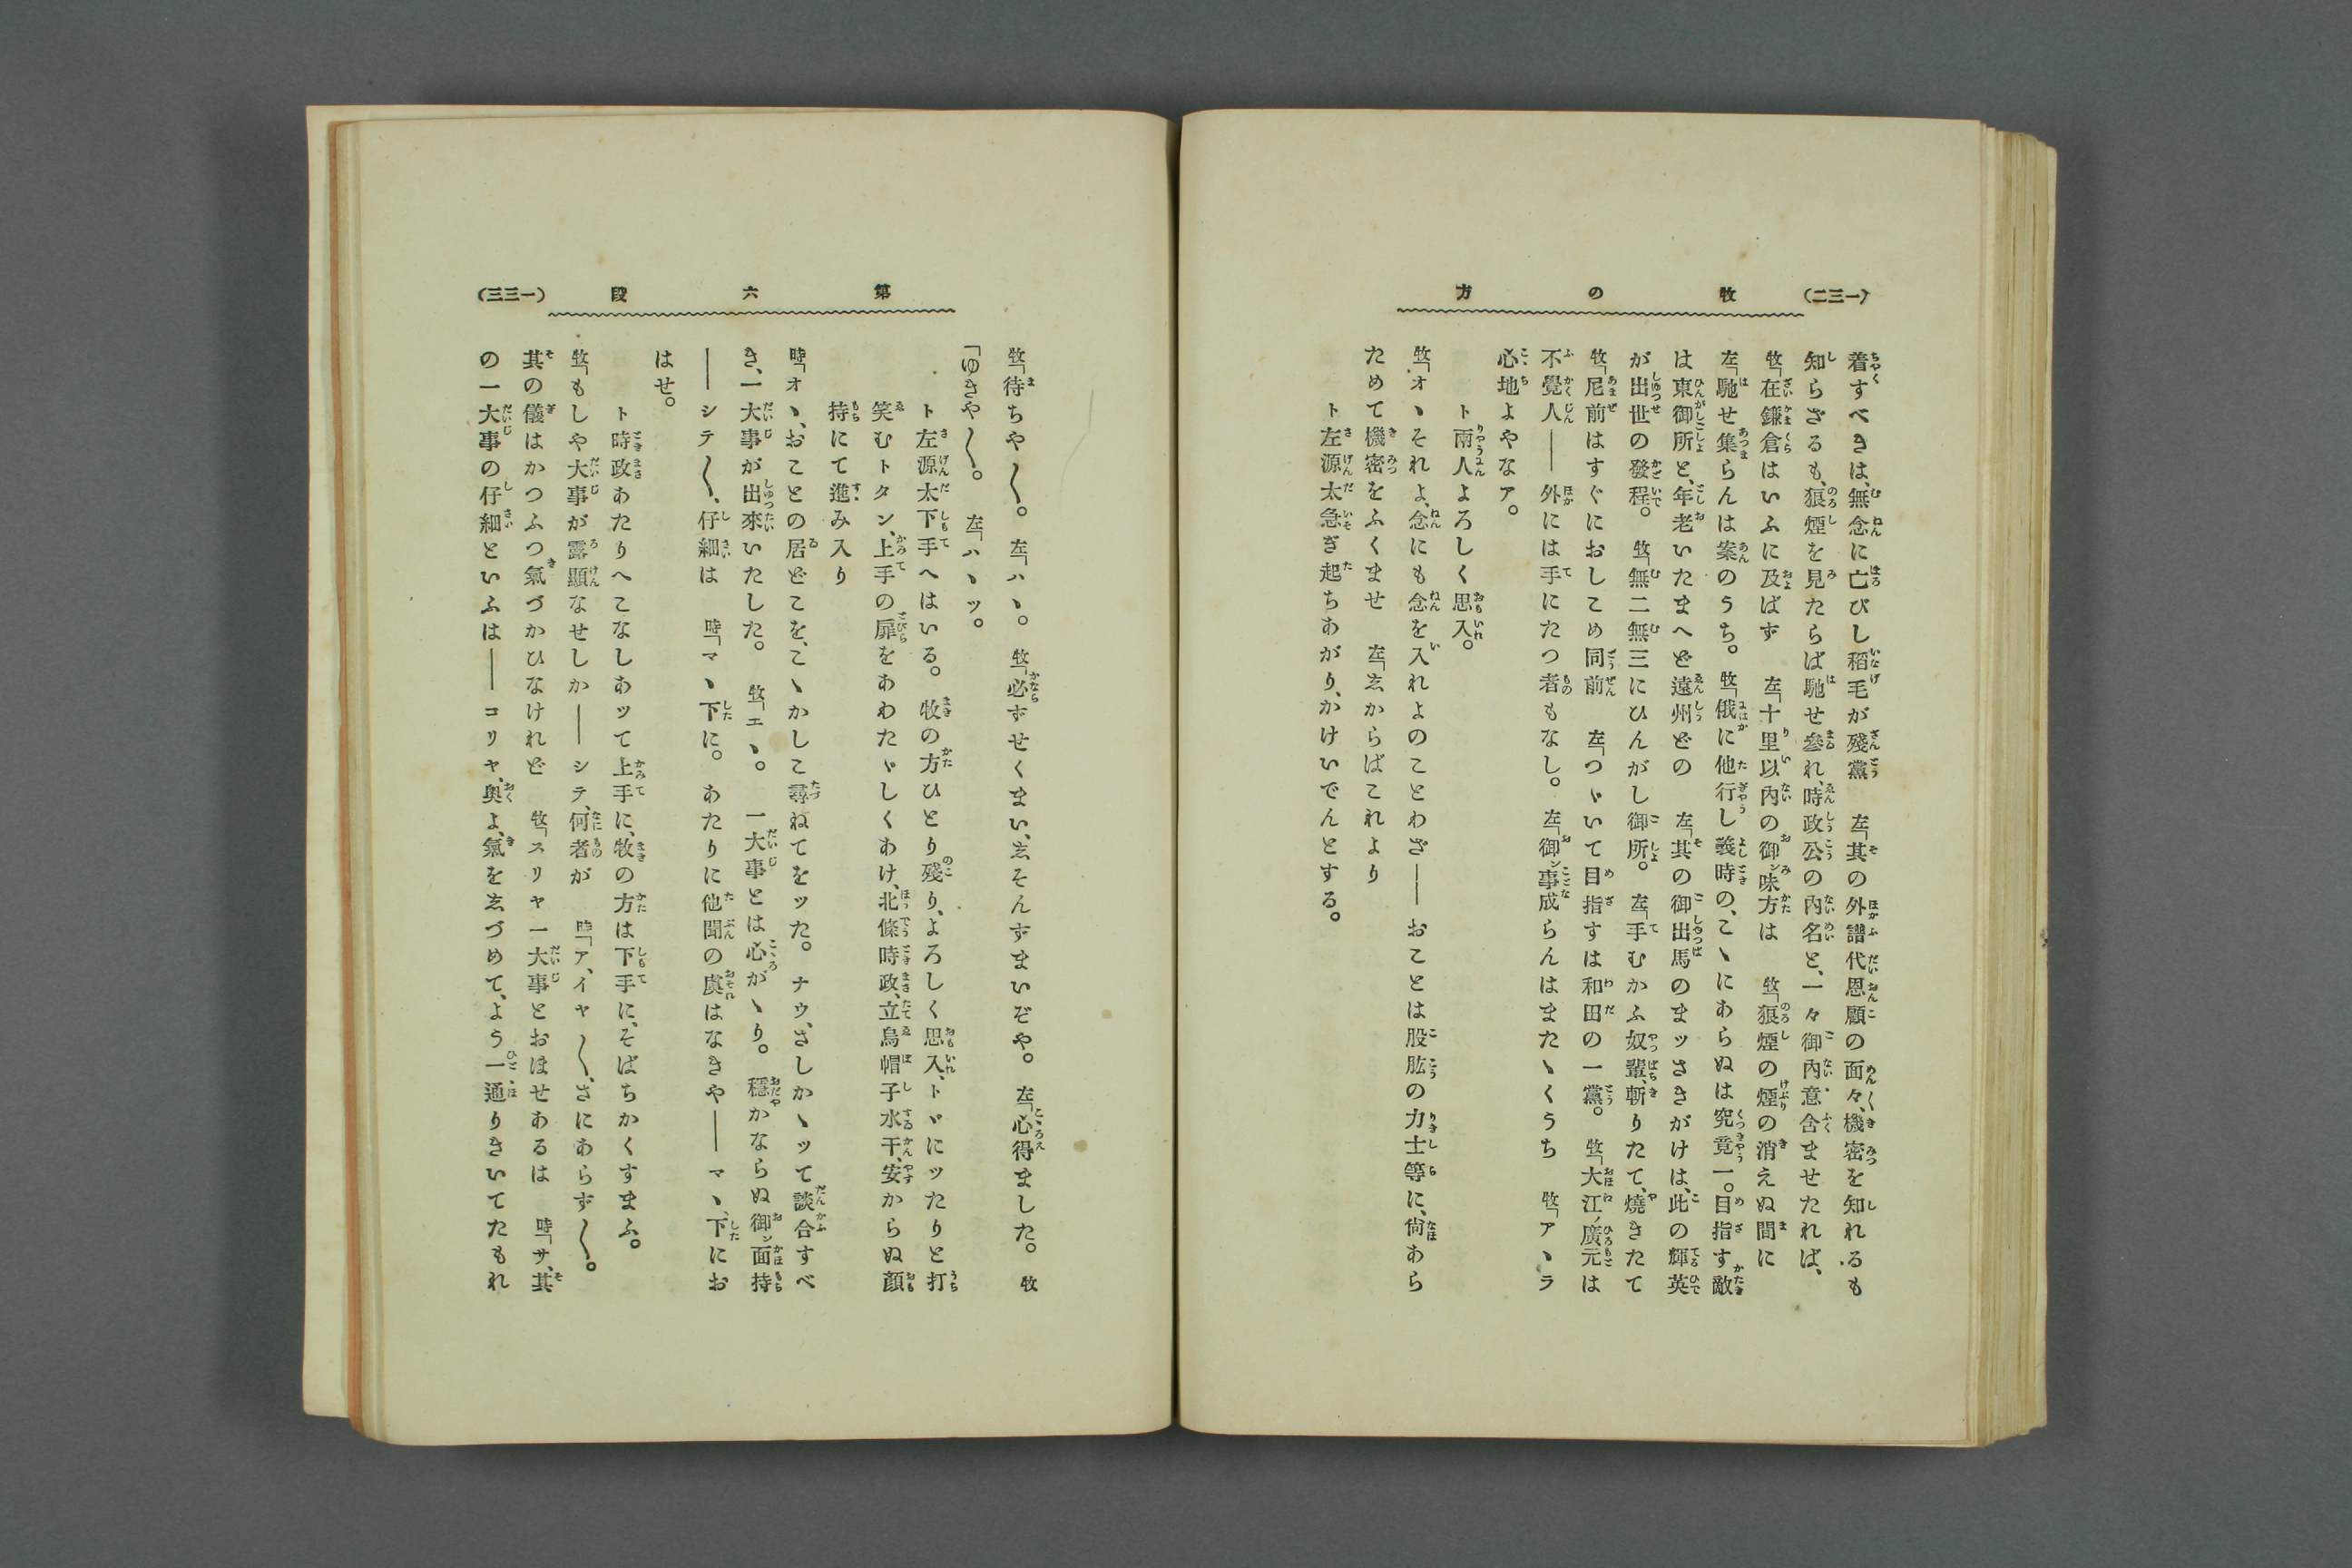 (一三二) 牧の方
着すべきは、無念に亡びし稻毛が殘黨　左「其の外譜代恩顧の面々、機密を知れるも
知らざるも、狼煙を見たらば馳せ參れ、時政公の內名と、一々御內意含ませたれば、
牧「在鎌倉はいふに及ばず　左「十里以內の御ン味方は　牧「狼煙の煙の消えぬ間に
左「馳せ集らんは案のうち。　牧「俄に他行し義時の、こゝにあらぬは究竟一。目指す敵
は東御所と、年老いたまへど遠州どの　左「其の御出馬のまッさきがけは、此の輝英
が出世の發程。　牧「無二無三にひんがし御所。　左「手むかふ奴輩、斬りたて、燒きたて
牧「尼前はすぐにおしこめ同前　左「つゞいて目指すは和田の一黨。　牧「大江ノ廣元は
不覺人――外には手にたつ者もなし。　左「御ン事成らんはまたゝくうち　牧「アヽラ
心地よやなア。
ト兩人よろしく思入。
牧「オヽそれよ、念にも念を入れよのことわざ――おことは股肱の力士等に、尙あら
ためて機密をふくませ　左「ゑからばこれより
ト左源太急ぎ起ちあがり、かけいでんとする。
第六段 (一三三)
牧「待ちや〱。　左「ハヽ。　牧「必ずせくまい、ゑそんずまいぞや。　左「心得ました。　牧
「ゆきや〱。　左「ハヽッ。
ト左源太下手へはいる。　牧の方ひとり殘り、よろしく思入、トヾにッたりと打
笑むトタン、上手の扉をあわたゞしくあけ、北條時政、立烏帽子水干、安からぬ顏
持にて進み入り
時「オヽ、おことの居どこを、こゝかしこ尋ねてをッた。　ナウ、さしかゝッて談合すべ
き、一大事が出來いたした。　牧「エヽ。　一大事とは心がゝり。　穩かならぬ御ン面持
――シテ〱、仔細は　時「マヽ下に。　あたりに他聞の虞はなきや――マヽ、下にお
はせ。
ト時政あたりへこなしあッて上手に、牧の方は下手に、そばちかくすまふ。
牧「もしや大事が露顯なせしか――シテ、何者が　時「ア、イヤ〱、さにあらず〱。
其の儀はかつふつ氣づかひなけれど　牧「スリヤ一大事とおほせあるは　時「サ、其
の一大事の仔細といふは――コリヤ、奧よ、氣をゑづめて、よう一通りきいてたもれ